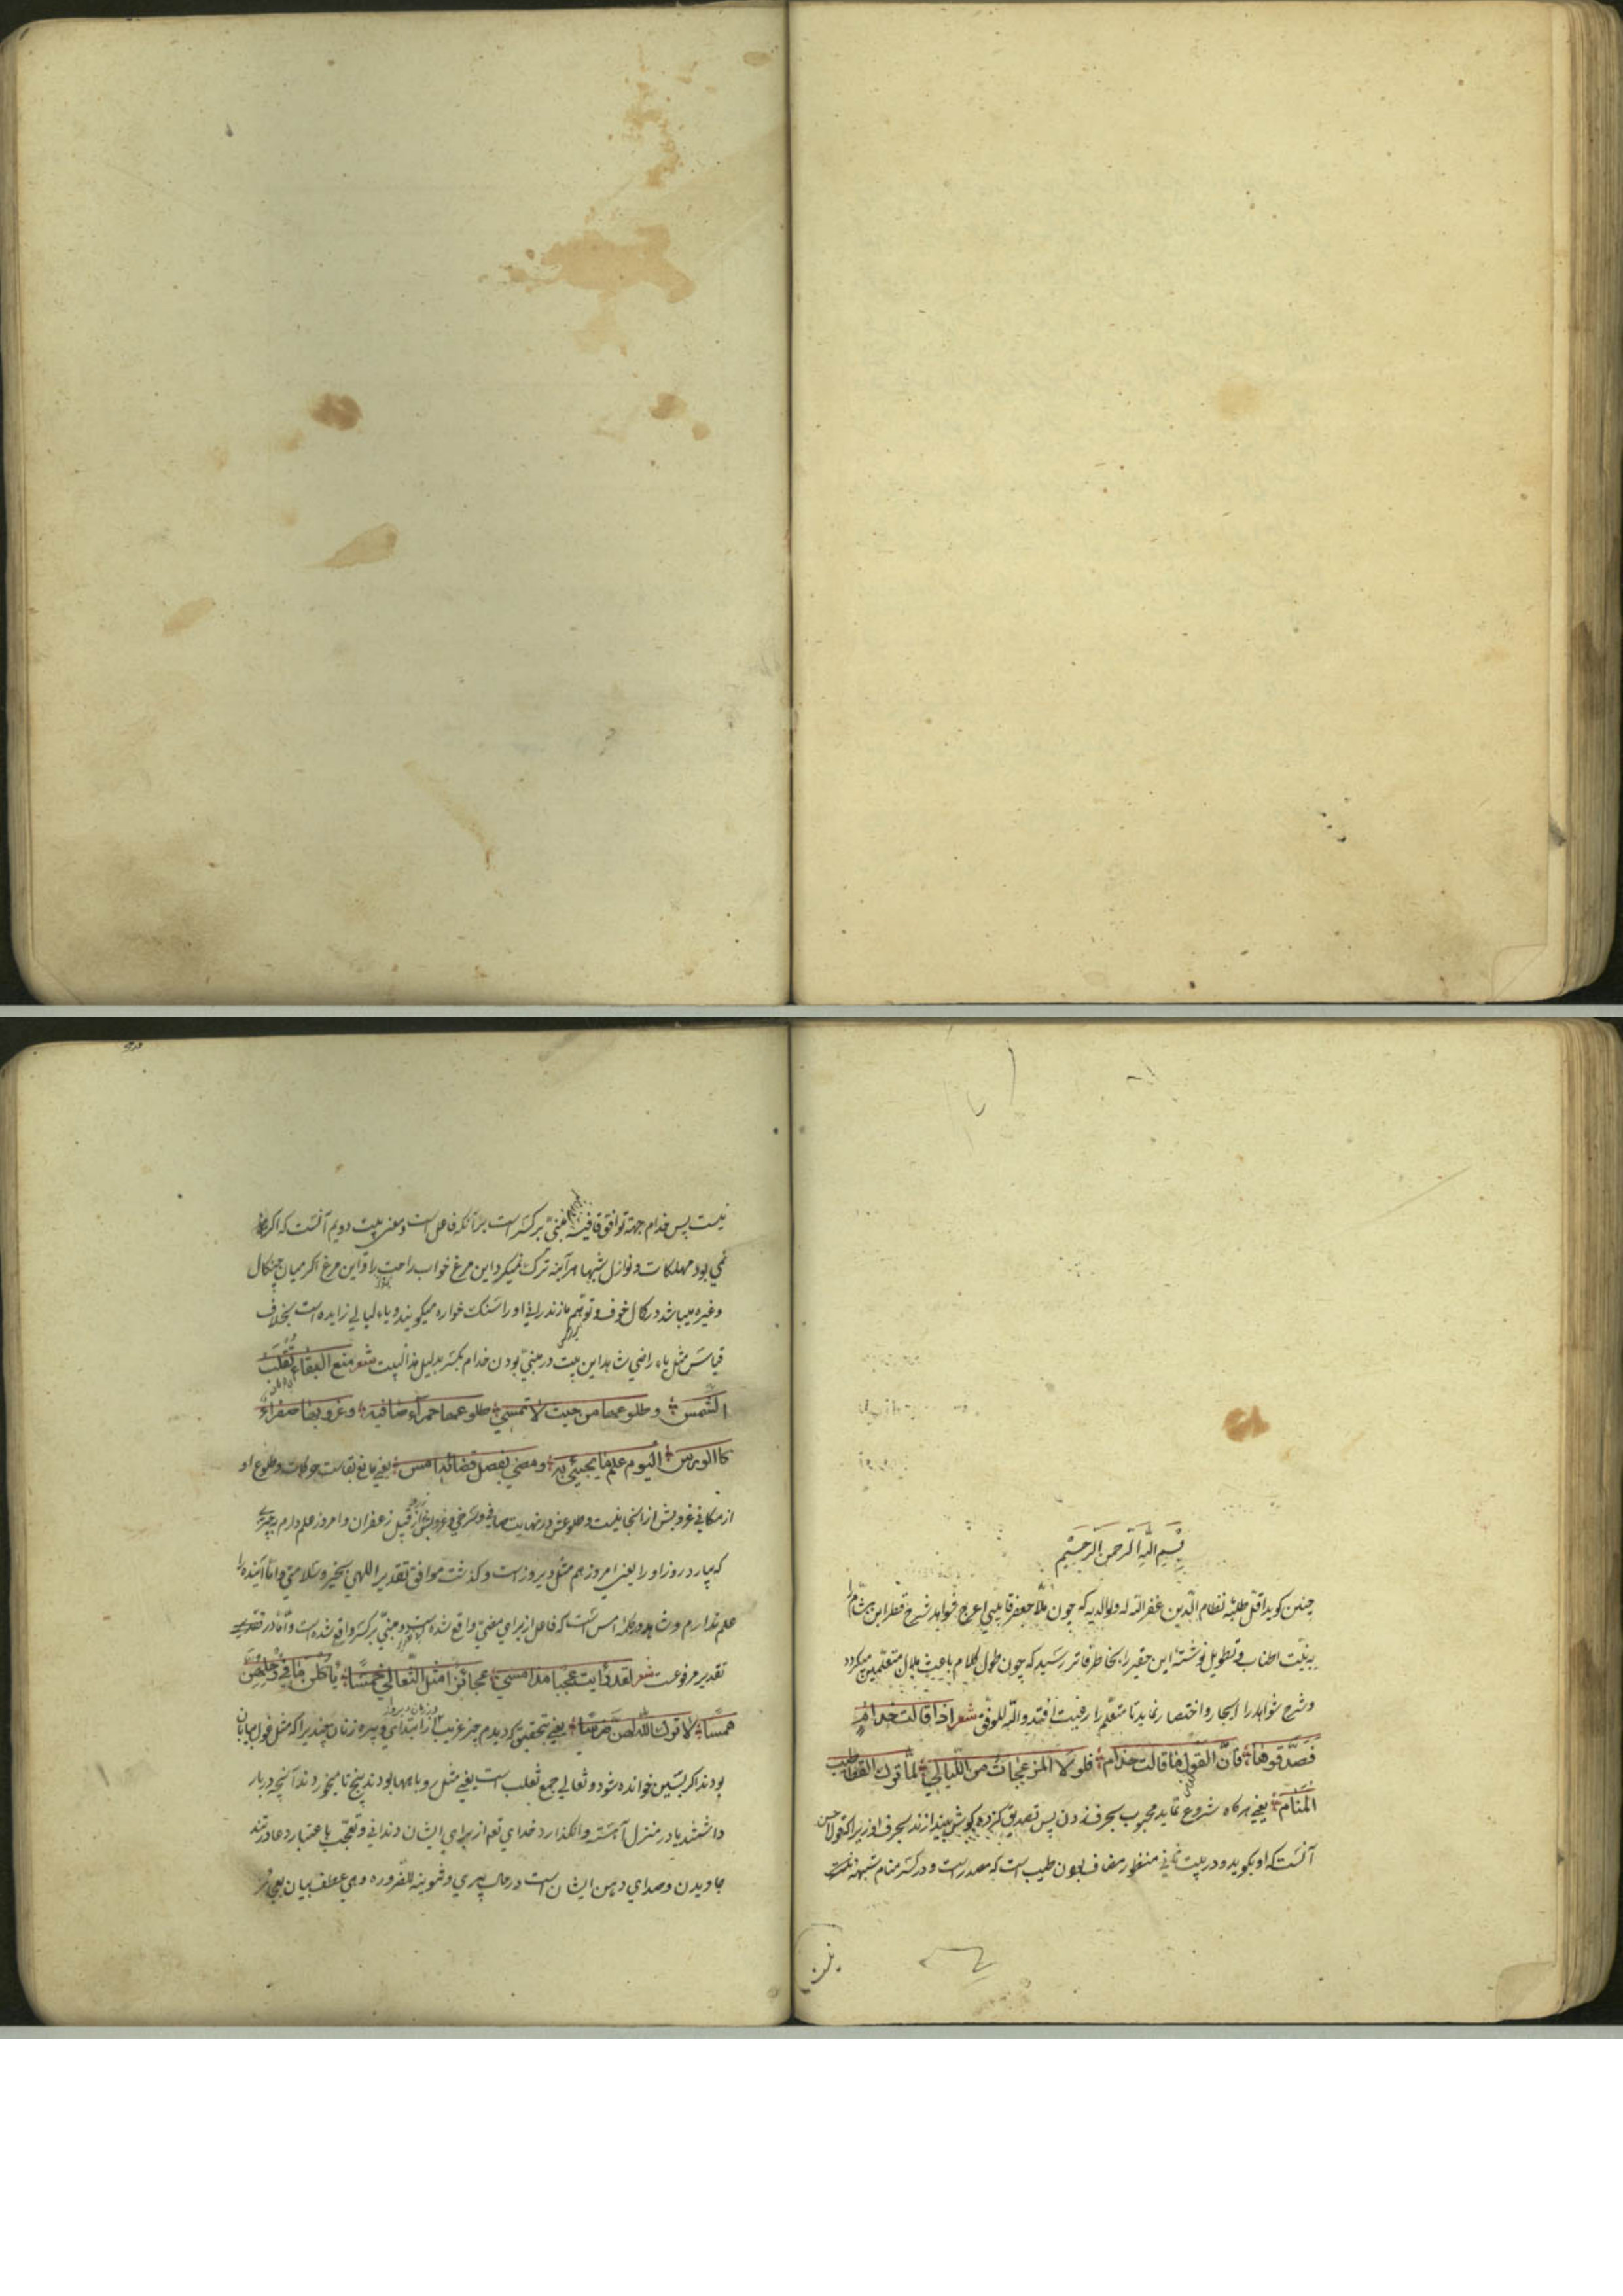 بسم الله الرحمن الرحیم
چنین کوید اقل طلبه نظام الدین غفر الله له ولوالدیه که چون ملا جعفر قاینی اعرج فواید شرح قطر ابن هشام را
به نیت اطناب و تطویل نوشته این حقیر را بخاطر فاتر رسید که چون طول کلام باعث ملال متعلمین میکردد
وشرح شواهد را ایجاز واختصار نماید تا متعلم را رغبت افتد والله الموفق شعر اذا قالت حذام
فصدقوها فان القول ما قالت حذام فلولا المزعجات من اللیالی لما ترک القطا طیب
المنام یعنی هرکاه شروع نماید محبوب بحرف زدن پس تصدیق کرده کوش بیندازند بحرف او زیرا که قول حسن
آنست که او بکوید ودر بیت ثانی منظور مضاف بودن طیب است که مصدر است ودر کسر منام شبهه
نیست پس حذام جهة توافق قافیه مبنی بر کسر است بنا آنکه فاعل است ومعنی بیت دویم آنست که اکر
نمی بود مهلکات ونوازل شبها هر آینه ترک نمیکرد این مرغ خواب راحت را واین مرغ اکر میان جنکال
وغیره میباشد در کمال خوف وتوهم مازندرانی او را سنک خواره میکویند ویاء لیالی زایده است بخلاف
قیاس مثل یاء راضی شاهد این بیت در مبنی بودن حذام بکسر بدلیل هذا البیت شعر منع البقاء تقلب
الشمس وطلوعها من حیث لا تمسی طلوعها حمراء صافیة وغروبها صفراء
کالورس الیوم اعلم ما یجیئ به ومضی بفصل قضائه امس یعنی مانع بقاست حرکات وطلوع او
از مکانی غروبش از انجا نیست وطلوعش در نهایت صافی وسرخی وغروبش از قبیل زعفران وامروز علم دارم بچیزی
که بیارد روز او را یعنی امروز هم مثل دیروز است وکذشت موافق تقدیر اللهی بخیر وسلامتی واما آینده را
علم ندارم وشاهد در کلمه امس است که فاعل از برای مضی واقع شده است ومبنی بر کسر واقع شده است
تقدیر مرفوعست شعر لقد رایت عجبا مذ امسی عجائزا مثل السعالی خمسا یاکلن ما فی رحلهن
همسا لا ترک الله لهن ضرسا یعنی بتحقیق که دیدم چیز غریب را از ابتدای دیروز پیره زنان چندیرا که مثل غول بیابان
بودند اکر بسین خوانده شود وثعالی جمع ثعلب است یعنی مثل روباهها بودند پنج تا میخوردند آنچه در بار
داشتند یا در منزل آهسته وانکذارد خدای تع از برای ایشان دندانی وتعجب باعتبار عادتند
جاویدن وصدای دهن ایشان است در حال پیری وتنوینه للضروره وهی عطف بیان